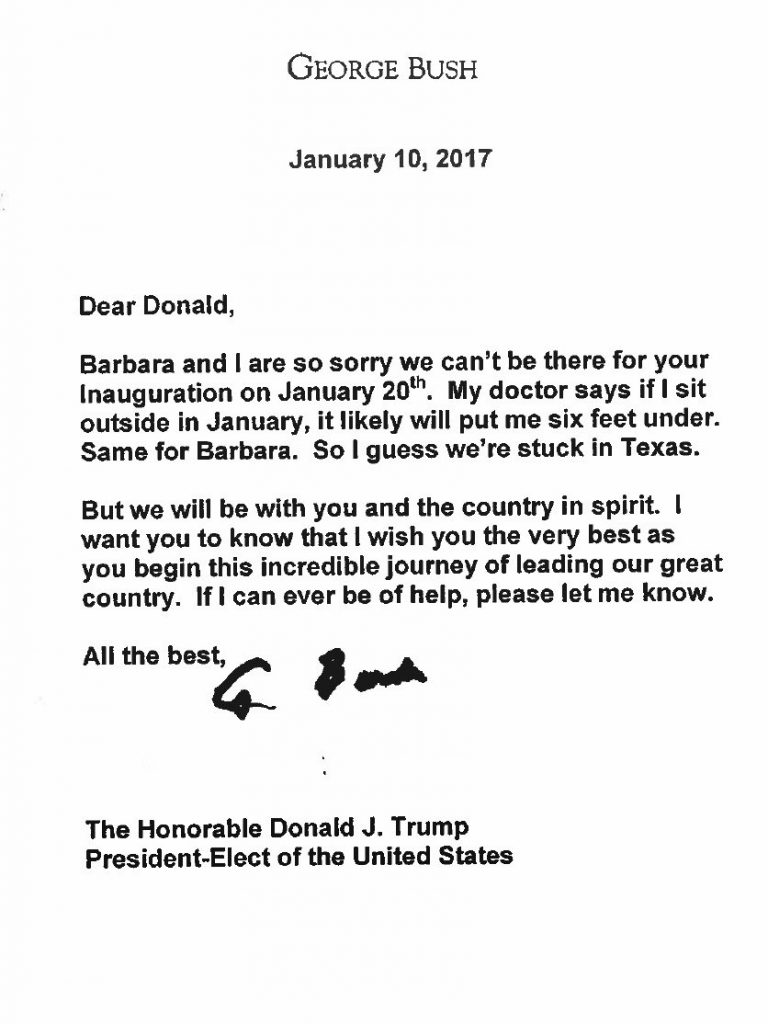 GEORGE BUSH
January 10, 2017
Dear Donald,
Barbara and I are so sorry we can't be there for your
Inauguration on January 20th. My doctor says if I sit
outside in January, it likely will put me six feet under.
Same for Barbara. So I guess we're stuck in Texas.
But we will be with you and the country in spirit. I
want you to know that I wish you the very best as
you begin this incredible journey of leading our great
country. If I can ever be of help, please let me know.
All the best,
G Bush
The Honorable Donald J. Trump
President-Elect of the United States